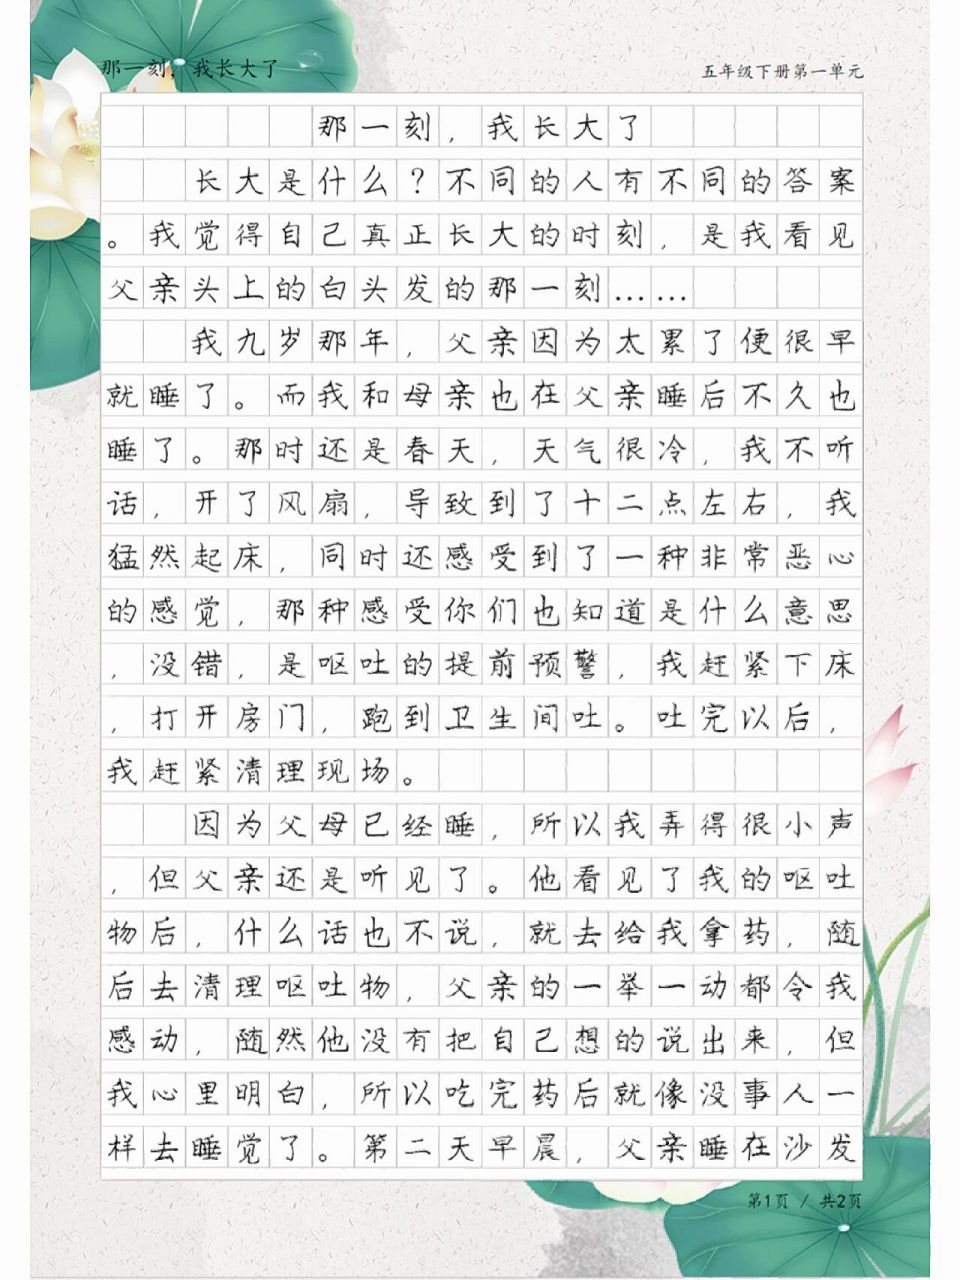 那一刻，我长大了
五年级下册第一单元
那一刻，我长大了
长大是什么？不同的人有不同的答案
。我觉得自己真正长大的时刻，是我看见
父亲头上的白头发的那一刻……
我九岁那年，父亲因为太累了便很早
就睡了。而我和母亲也在父亲睡后不久也
睡了。那时还是春天，天气很冷，我不听
话，开了风扇，导致到了十二点左右，我
猛然起床，同时还感受到了一种非常恶心
的感觉，那种感受你们也知道是什么意思
，没错，是呕吐的提前预警，我赶紧下床
，打开房门，跑到卫生间吐。吐完以后，
我赶紧清理现场。
因为父母已经睡，所以我弄得很小声
，但父亲还是听见了。他看见了我的呕吐
物后，什么话也不说，就去给我拿药，随
后去清理呕吐物，父亲的一举一动都令我
感动，随然他没有把自己想的说出来，但
我心里明白，所以吃完药后就像没事人一
样去睡觉了。第二天早晨，父亲睡在沙发
第1页 / 共2页